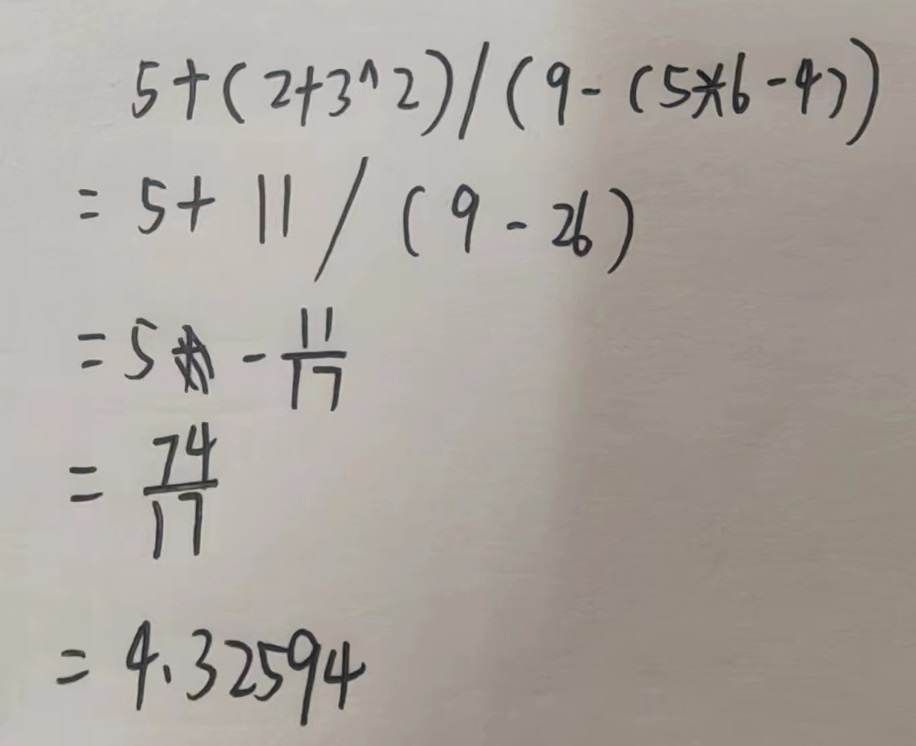 5+(2+3^2)/(9-(5*6-4))
= 5+ 11 / (9-26)
= 5 - 11/17
= 74/17
= 4.32594